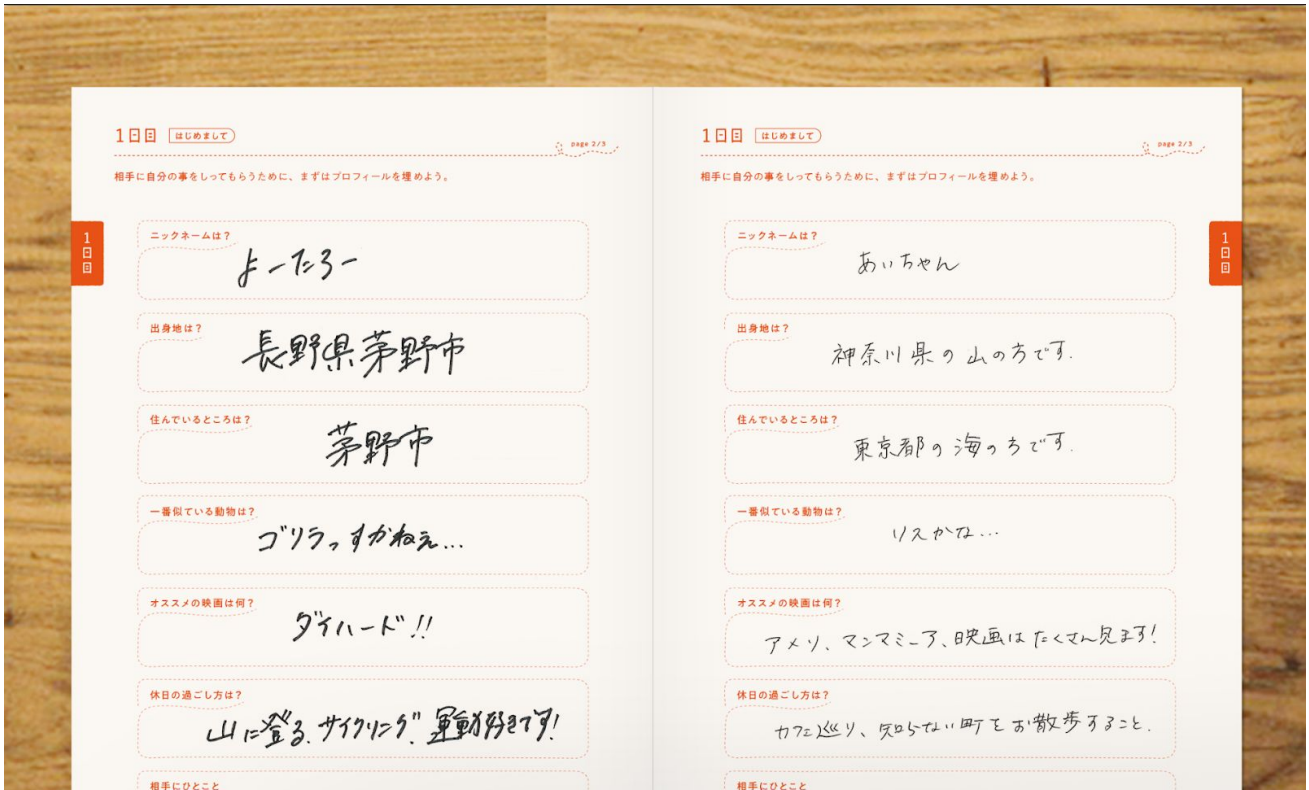 1日目 はじめまして
page 2/3
相手に自分の事をしってもらうために、まずはプロフィールを埋めよう。
1日目
ニックネームは?
よーたろー
出身地は?
長野県茅野市
住んでいるところは?
茅野市
一番似ている動物は?
ゴリラっすかねえ...
オススメの映画は何?
ダイハード!!
休日の過ごし方は?
山に登る、サイクリング、運動好きです!
相手にひとこと
1日目 はじめまして
page 2/3
相手に自分の事をしってもらうために、まずはプロフィールを埋めよう。
1日目
ニックネームは?
あいちゃん
出身地は?
神奈川県の山の方です.
住んでいるところは?
東京都の海の方です.
一番似ている動物は?
リスかな...
オススメの映画は何?
アメリ、マンマミーア、映画はたくさん見ます!
休日の過ごし方は?
カフェ巡り、知らない町をお散歩すること.
相手にひとこと